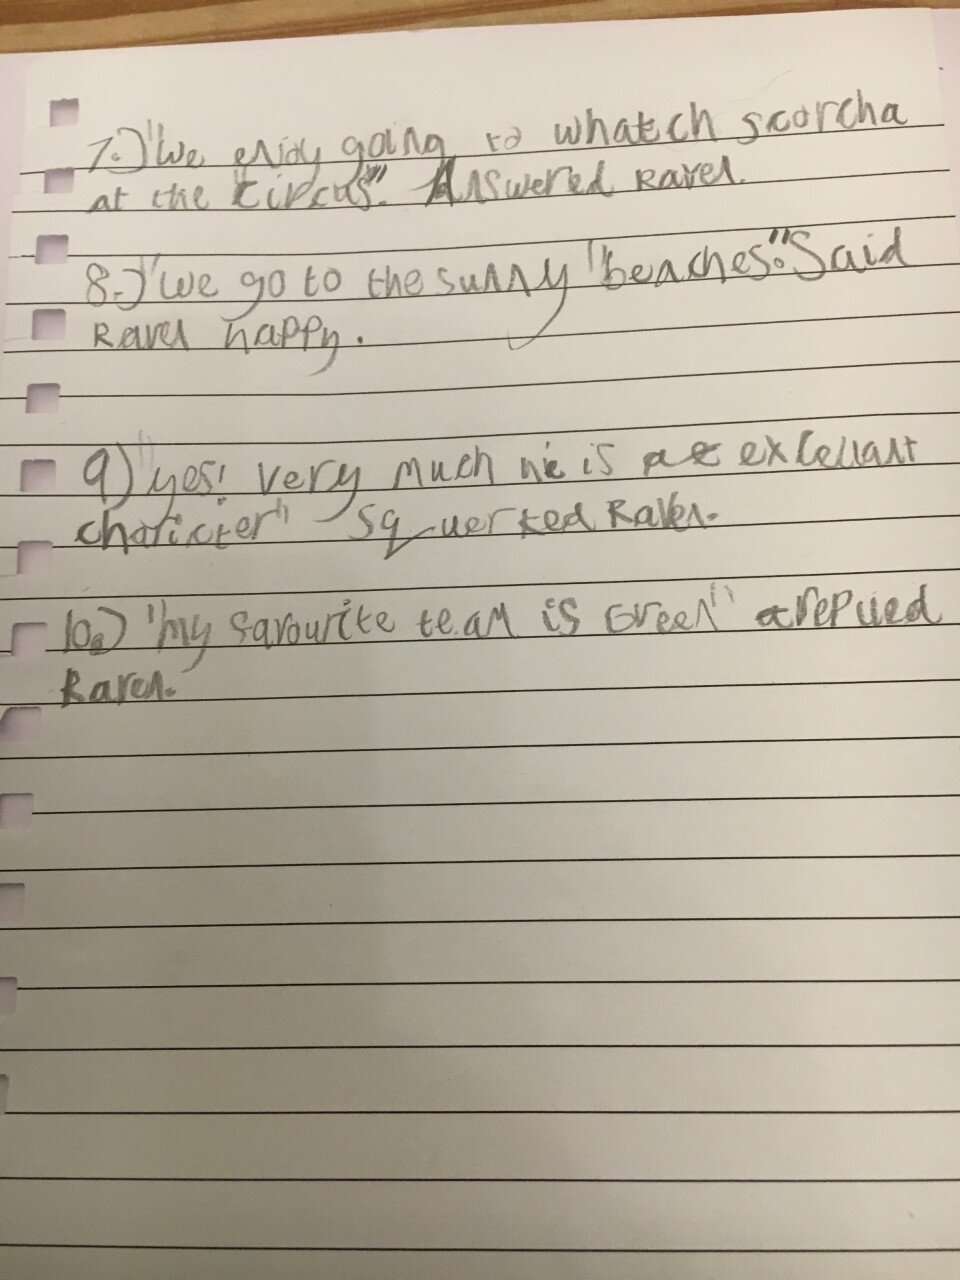 7.) "We enjoy going to whatch scorcha
at the "circus". Answered Raven.
8.) "we go to the sunny "beaches." Said
Raven happy.
9) "yes! very much he is a excellant
charicter" squerked Raven.
10.) "my favourite team is Green" repued
Raven.